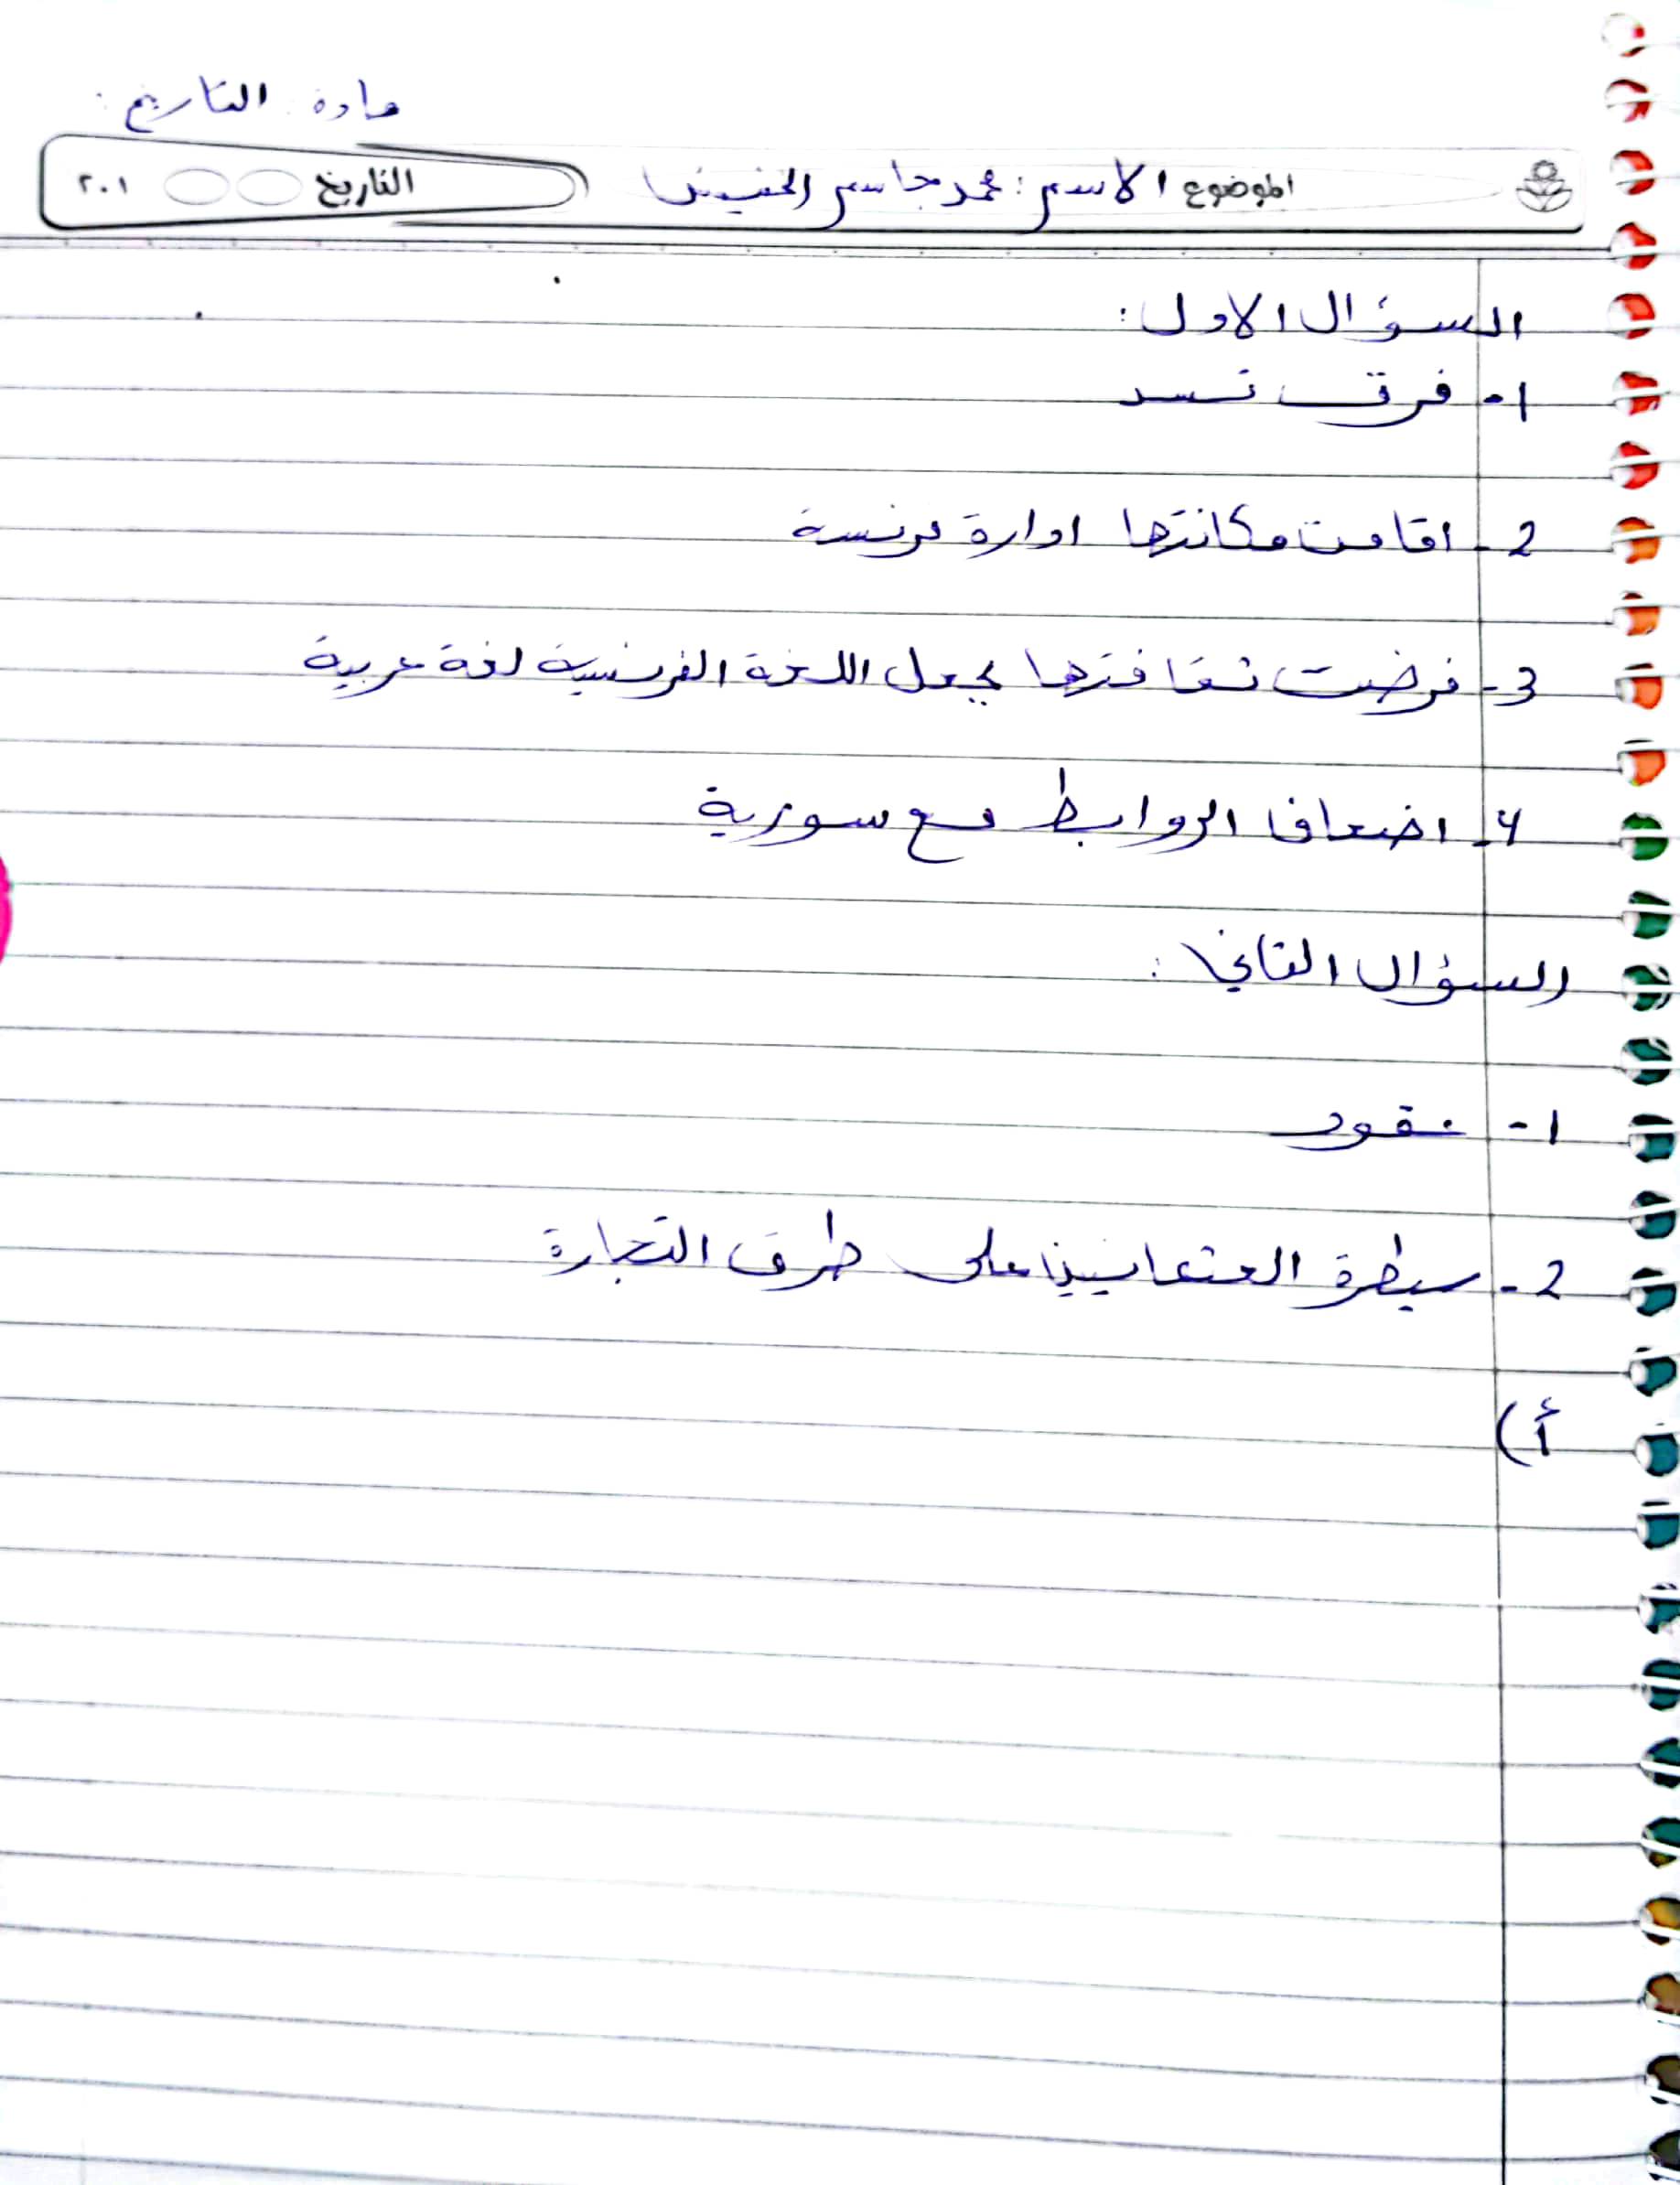 مادة التاريخ:
الموضوع الاسم: محمد جاسم الخنيفس التاريخ ٢٠١
السؤال الاول:
1- فرق تسد
2- اقامت مكانتها ادارة فرنسة
3- فرضت ثقافتها بجعل اللغة الفرنسية لغة عربية
4- اضعاف الروابط مع سورية
السؤال الثاني:
1- نقود
2- سيطرة العثمانيين على طرق التجارة
أ)